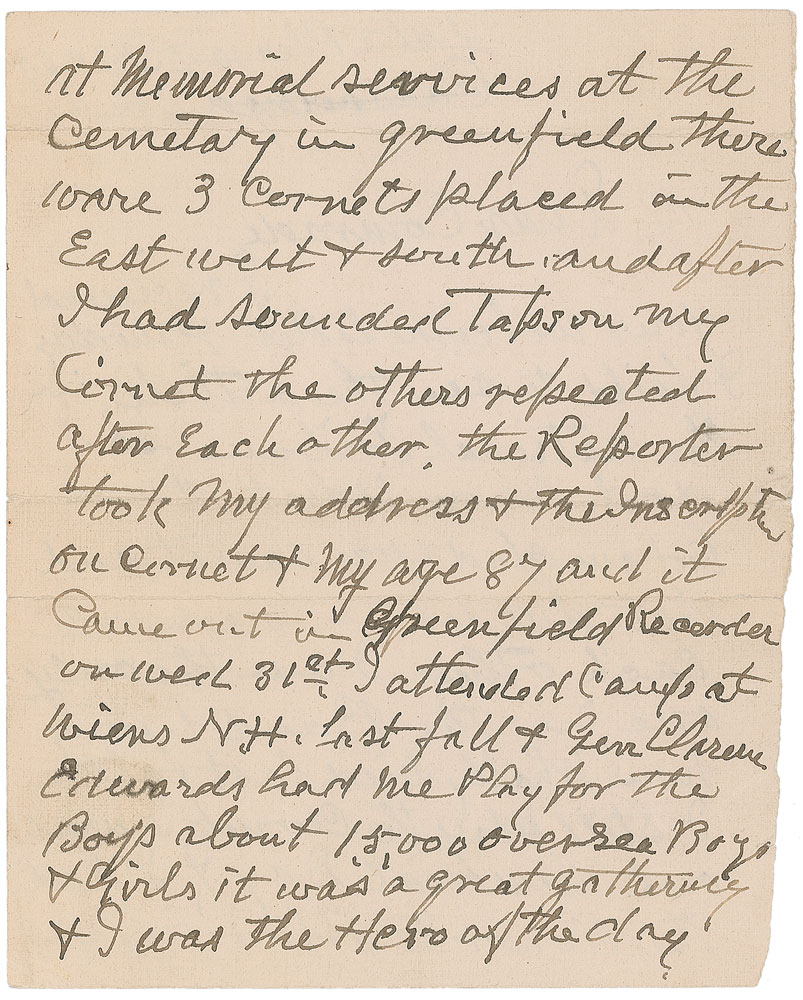 at Memorial services at the
Cemetary in greenfield there
ware 3 Cornets placed in the
East west & south and after
I had sounded Taps on my
Cornet the others repeated
after Each other. the Reporter
took My address & the Inscription
on Cornet & My age 87 and it
Came out in Greenfield Recorder
on wed 31st I attended Camp at
N.H. last fall & Gen Clarence
Edwards had me Play for the
Boys about 15,000 oversea Boys
& Girls it was a great gathering
& I was the Hero of the day